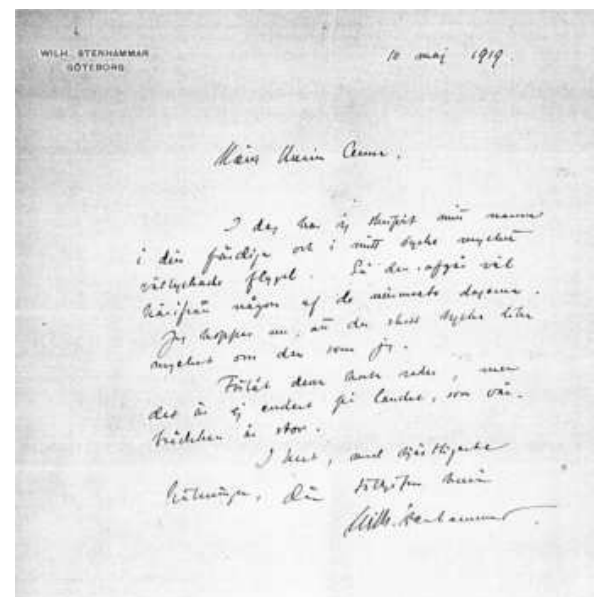 WILH. STENHAMMAR
GÖTEBORG
10 maj 1919.
I dag har jag skrifvit mitt namn
i din färdiga och i mitt tycke mycket
vällyckade flygel. Så den afgår väl
härifrån någon af de närmaste dagarna.
Jag hoppas nu, att du skall tycka lika
mycket om den som jag.
Förlåt dessa korta rader, men
det är ej endast på landet, som vår-
brådskan är stor.
I hast, med hjärtligaste
hälsningar, din
Wilh. Stenhammar.